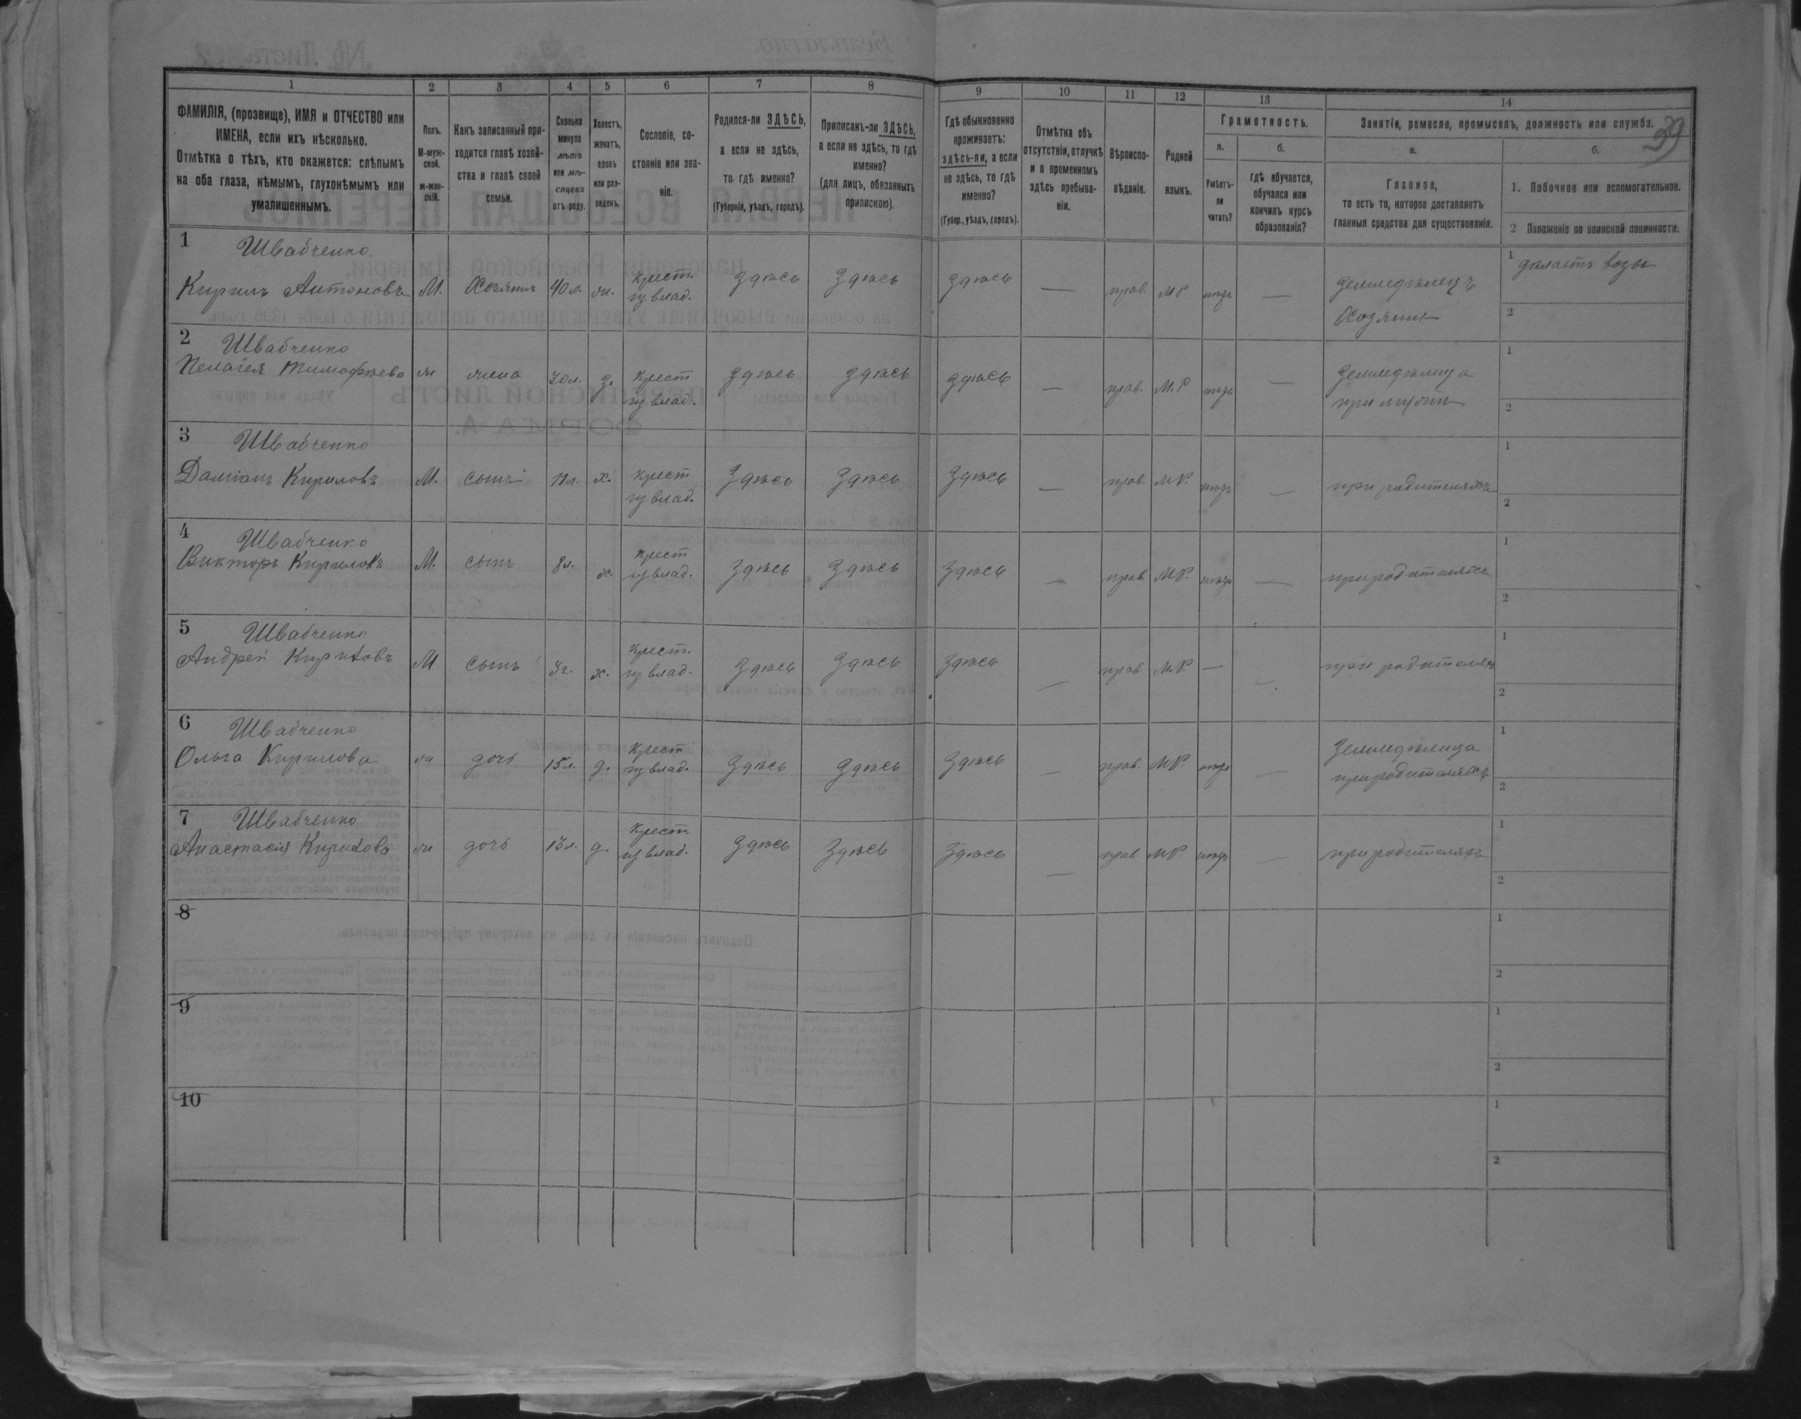 39
1 2 3 4 5 6 7 8 9 10 11 12 13 14
ФАМИЛІЯ, (прозвище), ИМЯ и ОТЧЕСТВО или
ИМЕНА, если ихъ нѣсколько.
Отмѣтка о тѣхъ, кто окажется: слѣпымъ
на оба глаза, нѣмымъ, глухонѣмымъ или
умалишеннымъ.
Полъ.
М-муж-
ской.
ж-жен-
скій.
Какъ записанный при-
ходится главѣ хозяй-
ства и главѣ своей
семьи.
Сколько
минуло
лѣтъ
или мѣ-
сяцевъ
отъ роду.
Холостъ,
женатъ,
вдовъ
или раз-
веденъ.
Сословіе, со-
стояніе или зва-
ніе.
Родился-ли ЗДѢСЬ,
а если не здѣсь,
то гдѣ именно?
(Губернія, уѣздъ, городъ).
Приписанъ-ли ЗДѢСЬ,
а если не здѣсь, то гдѣ
именно?
(для лицъ, обязанныхъ
припискою).
Гдѣ обыкновенно
проживаетъ:
здѣсь-ли, а если
не здѣсь, то гдѣ
именно?
(Губер., уѣздъ, городъ).
Отмѣтка объ
отсутствіи, отлучкѣ
и о временномъ
здѣсь пребыва-
ніи.
Вѣроиспо-
вѣданіе.
Родной
языкъ.
Грамотность.
а.
Умѣетъ-
ли
читать?
б.
гдѣ обучается,
обучался или
кончилъ курсъ
образованія?
Занятія, ремесло, промыселъ, должность или служба.
а.
Главное,
то есть то, которое доставляетъ
главныя средства для существованія.
б.
1. Побочное или вспомогательное.
2 Положеніе по воинской повинности.
1 Швабченко
Кирилъ Антоновъ М. Хозяинъ 40 л. ж. крест. из влад. Здѣсь Здѣсь Здѣсь — прав. М.Р. — Земледѣлецъ
Хозяинъ
1
2
2 Швабченко
Пелагея Тимофѣева ж жена крест из влад. Здѣсь Здѣсь Здѣсь — прав. М.Р — Земледѣлица
1
2
3 Швабченко
Даміанъ Кириловъ М. сынъ х. крест из влад. Здѣсь Здѣсь Здѣсь — прав. М.Р. — при родителяхъ
1
2
4 Швабченко
Викторъ Кириловъ М. сынъ 8 л. х. крест из влад. Здѣсь Здѣсь Здѣсь — прав М.Р. — при родителяхъ
1
2
5 Швабченко
Андрей Кириловъ М сынъ х. крест. из влад. Здѣсь Здѣсь Здѣсь — прав. М.Р — — при родителяхъ
1
2
6 Швабченко
Ольга Кирилова ж дочь 15 л. д. крест из влад. Здѣсь Здѣсь Здѣсь — прав. М.Р. — Земледѣлица
при родителяхъ
1
2
7 Швабченко
Анастасія Кирилова ж дочь 13 л. д. крест из влад. Здѣсь Здѣсь Здѣсь — прав М.Р. — при родителяхъ
1
2
8
1
2
9
1
2
10
1
2